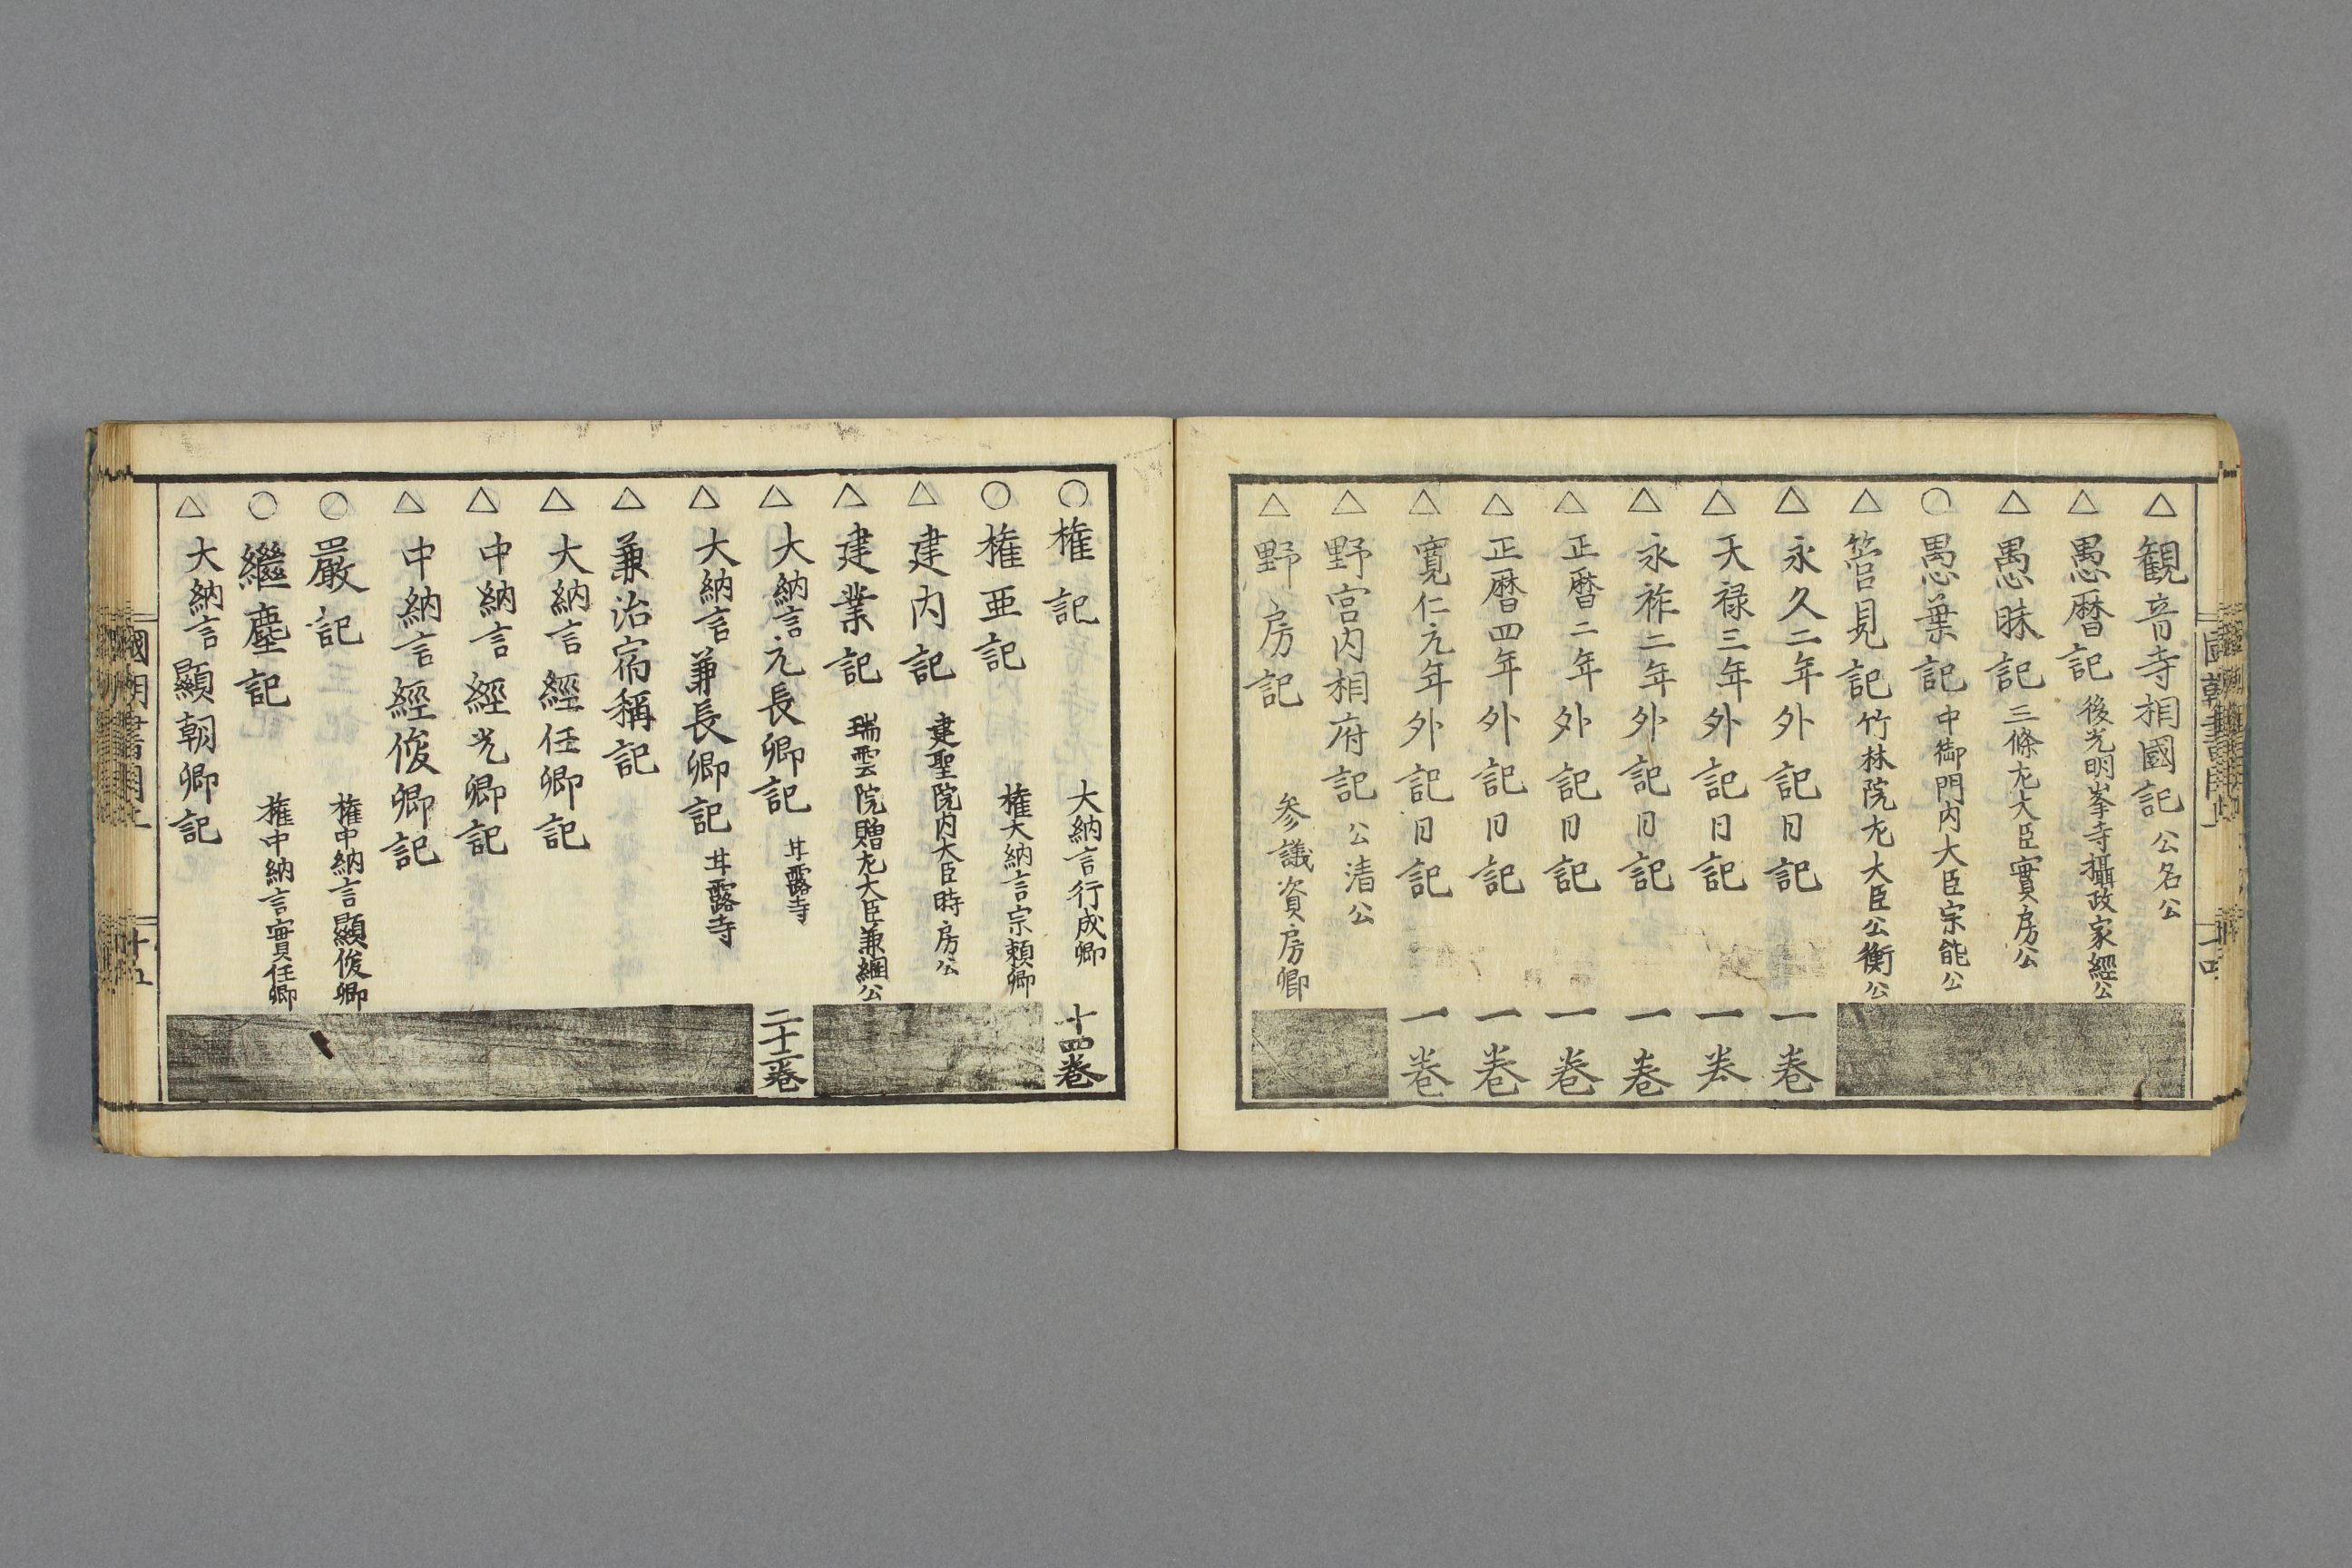 △観音寺相國記 公名公
△愚暦記 後光明峯寺攝政家經公
△愚昧記 三條左大臣實房公
○愚葉記 中御門内大臣宗能公
△管見記 竹林院左大臣公衡公
△永久二年外記日記 一巻
△天禄三年外記日記 一巻
△永祚二年外記日記 一巻
△正暦二年外記日記 一巻
△正暦四年外記日記 一巻
△寛仁元年外記日記 一巻
△野宮内相府記 公清公
△野房記 参議資房卿
○権記 大納言行成卿 十四巻
○権亜記 権大納言宗頼卿
△建内記 建聖院内大臣時房公
△建業記 瑞雲院贈左大臣兼綱公
△大納言元長卿記 甘露寺 二十二巻
△大納言兼長卿記 甘露寺
△兼治宿禰記
△大納言經任卿記
△中納言經光卿記
△中納言經俊卿記
○嚴記 権中納言顯俊卿
○繼塵記 権中納言實任卿
△大納言顯朝卿記